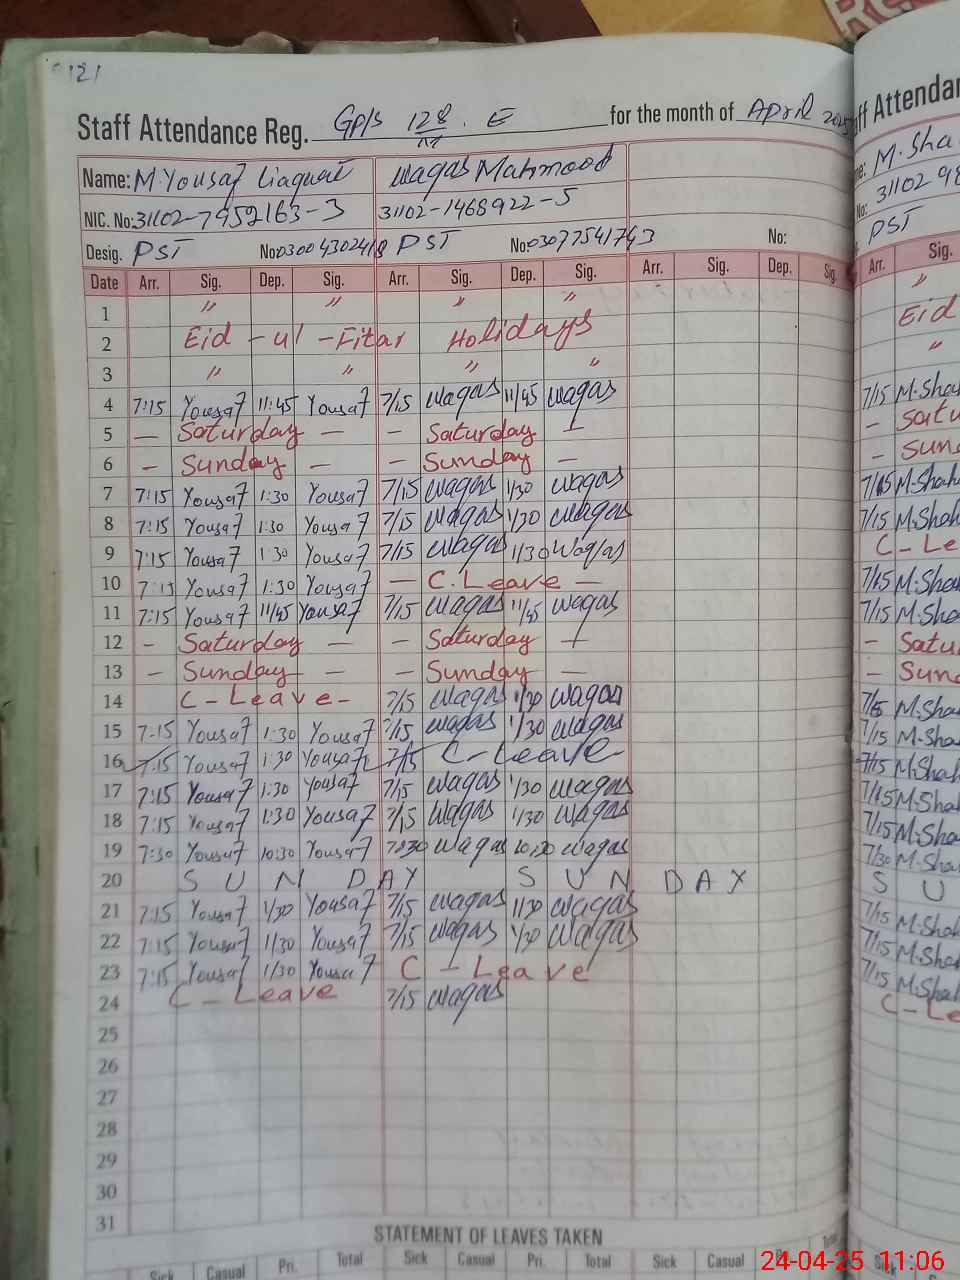 121
Staff Attendance Reg. GP/S 128/M . E for the month of April 2025
Name: M. Yousaf Liaquat Waqas Mahmood
NIC. No: 31102-7952163-3 31102-1468922-5
Desig. PST No: 03004302418 PST No: 03077541743 No:
Date Arr. Sig. Dep. Sig. Arr. Sig. Dep. Sig. Arr. Sig. Dep. Sig.
1 〃 〃 〃 〃
2 Eid - ul - Fitar Holidays
3 〃 〃 〃 〃
4 7:15 Yousaf 11:45 Yousaf 7/15 Waqas 11/45 Waqas
5 — Saturday — — Saturday —
6 — Sunday — — Sunday —
7 7:15 Yousaf 1:30 Yousaf 7/15 Waqas 1/30 Waqas
8 7:15 Yousaf 1:30 Yousaf 7/15 Waqas 1/30 Waqas
9 7:15 Yousaf 1:30 Yousaf 7/15 Waqas 1/30 Waqas
10 7:15 Yousaf 1:30 Yousaf — C. Leave —
11 7:15 Yousaf 11/45 Yousaf 7/15 Waqas 11/45 Waqas
12 — Saturday — — Saturday —
13 — Sunday — — Sunday —
14 C - Leave - 7/15 Waqas 1/30 Waqas
15 7:15 Yousaf 1:30 Yousaf 7/15 Waqas 1/30 Waqas
16 7:15 Yousaf 1:30 Yousaf 7/15 C - Leave
17 7:15 Yousaf 1:30 Yousaf 7/15 Waqas 1/30 Waqas
18 7:15 Yousaf 1:30 Yousaf 7/15 Waqas 1/30 Waqas
19 7:30 Yousaf 10:30 Yousaf 7:30 Waqas 10:30 Waqas
20 S U N D A Y S U N D A Y
21 7:15 Yousaf 1/30 Yousaf 7/15 Waqas 1/30 Waqas
22 7:15 Yousaf 1/30 Yousaf 7/15 Waqas 1/30 Waqas
23 7:15 Yousaf 1/30 Yousaf C - Leave
24 C - Leave 7/15 Waqas
25
26
27
28
29
30
31
STATEMENT OF LEAVES TAKEN
Sick Casual Pri. Total Sick Casual Pri. Total Sick Casual Total
24-04-25 11:06